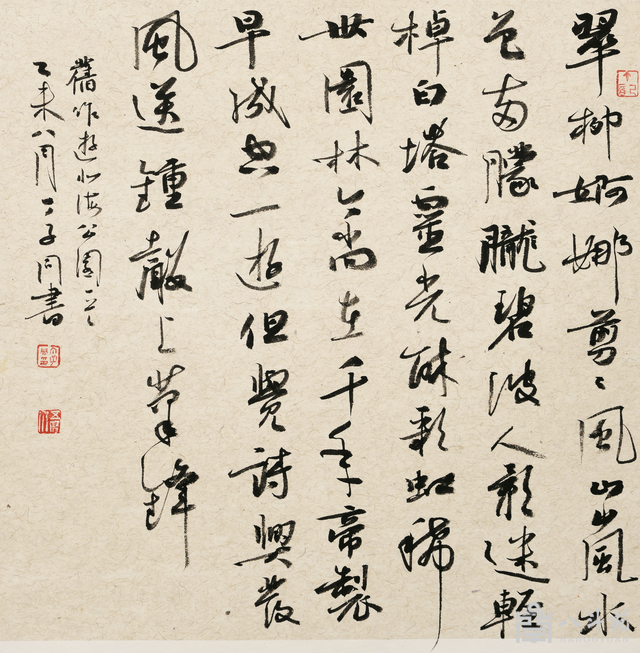 翠柳婀娜剪〻風山嵐水
色雨朦朧碧波人影迷輕
棹白塔靈光彩虹稀
世園林今尚在千年帝製
早成空一遊但覺詩興發
風送鐘聲上筆鋒
舊作遊北海公園一
乙未八月丁子同書